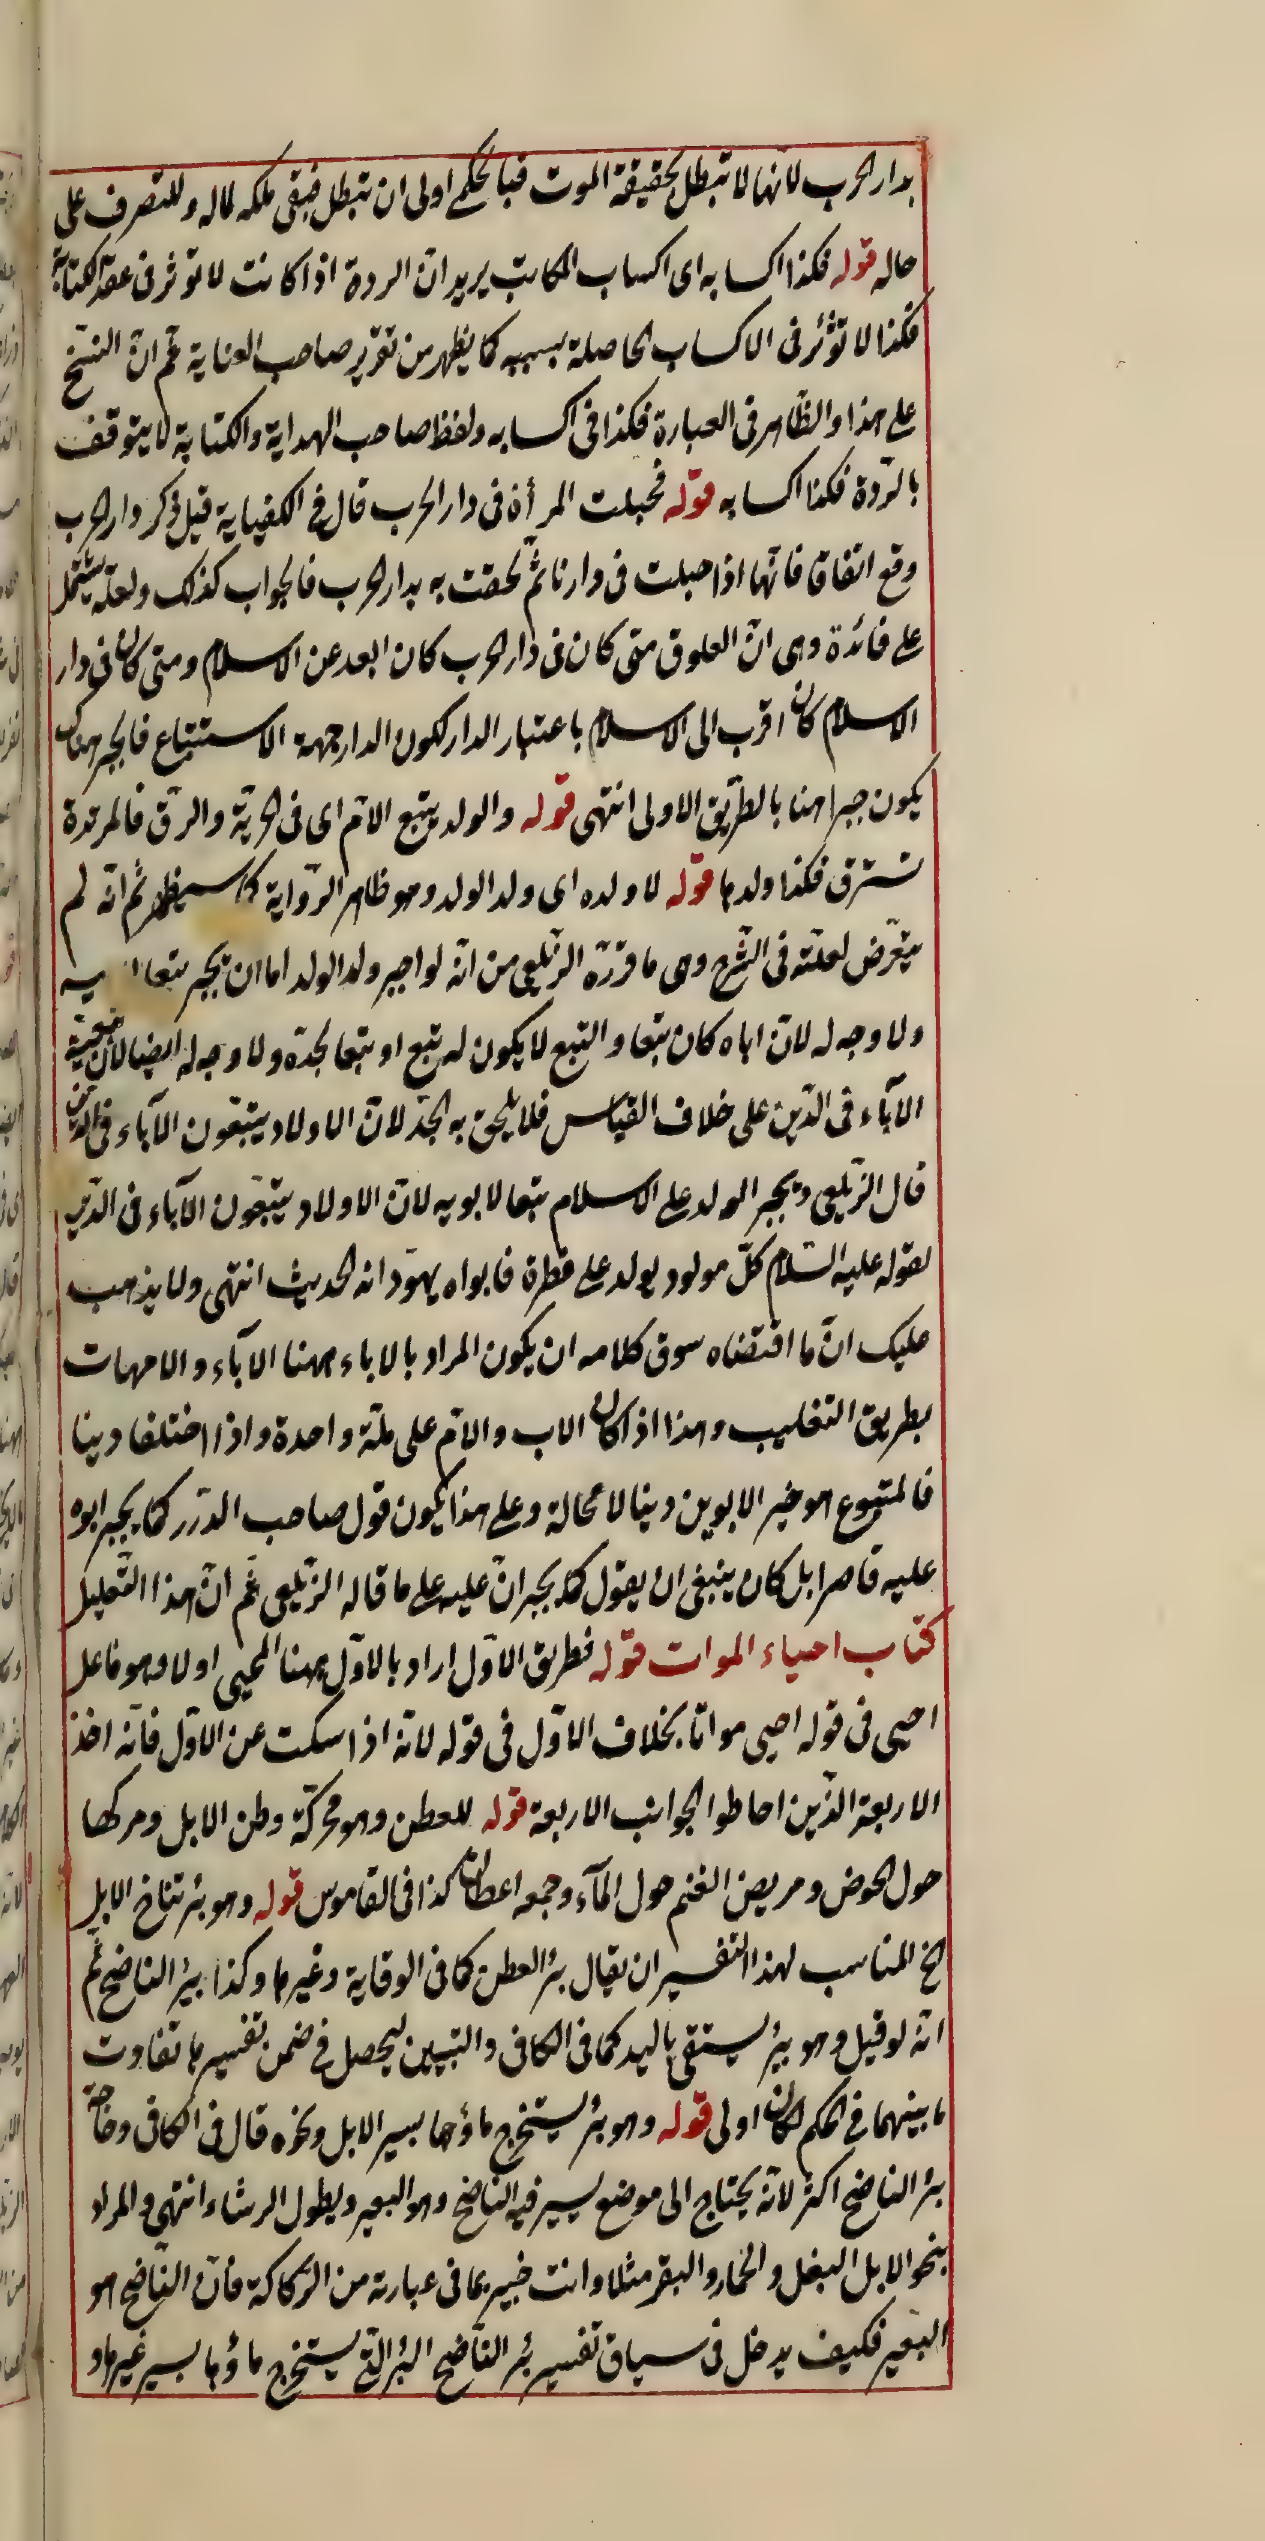 بدار الحرب لانها لا تبطل بحقيقة الموت فبالحكمى اولى ان تبطل فيبقى ملكه لماله وللتصرف على
حاله قوله فكذا اكسابه اى اكساب المكاتب يريد انّ الردة اذا كانت لا تؤثر فى عقد الكتابة
فكذا لا تؤثر فى الاكساب الحاصلة بسببه كما يظهر من تقرير صاحب العناية ثم انّ النسخ
على هذا والظاهر فى العبارة فكذا فى اكسابه ولفظ صاحب الهداية والكتابة لا يتوقف
بالردة فكذا اكسابه قوله فحبلت المرأة فى دار الحرب قال فى الكفاية قيل ذكر دار الحرب
وقع اتفاق فانّها اذا حبلت فى دارنا ثم لحقت به بدار الحرب فالجواب كذلك ولعلّه يشتمل
على فائدة وهى انّ العلوق متى كان فى دار الحرب كان ابعد عن الاسلام ومتى كان فى دار
الاسلام كان اقرب الى الاسلام باعتبار الدار لكون الدار جهة الاستتباع فالجبر هناك
يكون جبرا هنا بالطريق الاولى انتهى قوله والولد يتبع الامّ اى فى الحرية والرق فالمرتدة
تسترق فكذا ولدها قوله لا ولده اى ولد الولد وهو ظاهر الرّواية كما سيظهر ثم انّه لم
يتعرّض لعلّته فى الشّرح وهى ما قرّره الزّيلعى من انّه لو اجبر ولد الولد اما ان يجبر تبعا
ولا وجه له لانّ اباه كان تبعا والتبع لا يكون له تبع او تبعا لجدّه ولا وجه له ايضا لانّ تبعية
الآباء فى الدّين على خلاف القياس فلا يلحق به الجدّ لانّ الاولاد يتبعون الآباء فى الدّين
قال الزّيلعى ويجبر الولد على الاسلام تبعا لابويه لانّ الاولاد يتبعون الآباء فى الدّين
لقوله عليه السّلام كلّ مولود يولد على فطرة فابواه يهوّدانه الحديث انتهى ولا يذهب
عليك انّ ما اقتضاه سوق كلامه ان يكون المراد بالاباء ههنا الآباء والامهات
بطريق التغليب وهذا اذا كان الاب والامّ على ملّة واحدة واذا اختلفا دينا
فالمتبوع هو خير الابوين دينا لا محالة وعلى هذا يكون قول صاحب الدّرر كما يجبر ابوه
عليه قاصرا بل كان ينبغى ان يقول كما يجبران عليه على ما قاله الزّيلعى ثم انّ هذا التّعليل
كتاب احياء الموات قوله فطريق الاوّل اراد بالاوّل ههنا المحيى اولا وهو فاعل
احيى فى قوله احيى مواتا بخلاف الاوّل فى قوله لانّه اذا سكت عن الاوّل فانّه اخذ
الاربعة الذّين احاطوا الجوانب الاربعة قوله للعطن وهو محرّكة وطن الابل ومبركها
حول الحوض ومربض الغنم حول المآء وجمعه اعطان كذا فى القاموس قوله وهو بئر تناخ الابل
الخ المناسب لهذا التفسير ان يقال بئر العطن كما فى الوقاية وغيرها وكذا بئر الناضح ثم
انّه لو قيل وهو بئر يستقى باليد كما فى الكافى والتبيين ليحصل فى ضمن تفسيرها تفاوت
ما بينهما فى الحكم لكان اولى قوله وهو بئر يستخرج ماؤها بسير الابل ونحوه قال فى الكافى وحاجة
بئر الناضح اكثر لانّه يحتاج الى موضع يسير فيه الناضح وهو البعير ويطول الرشاء انتهى والمراد
بنحو الابل البغل والحمار والبقر مثلا وانت خبير بما فى عبارته من الرّكاكة فانّ النّاضح هو
البعير فكيف يدخل فى سياق تفسير بئر النّاضح البئر التى يستخرج ماؤها بسير غيرها و